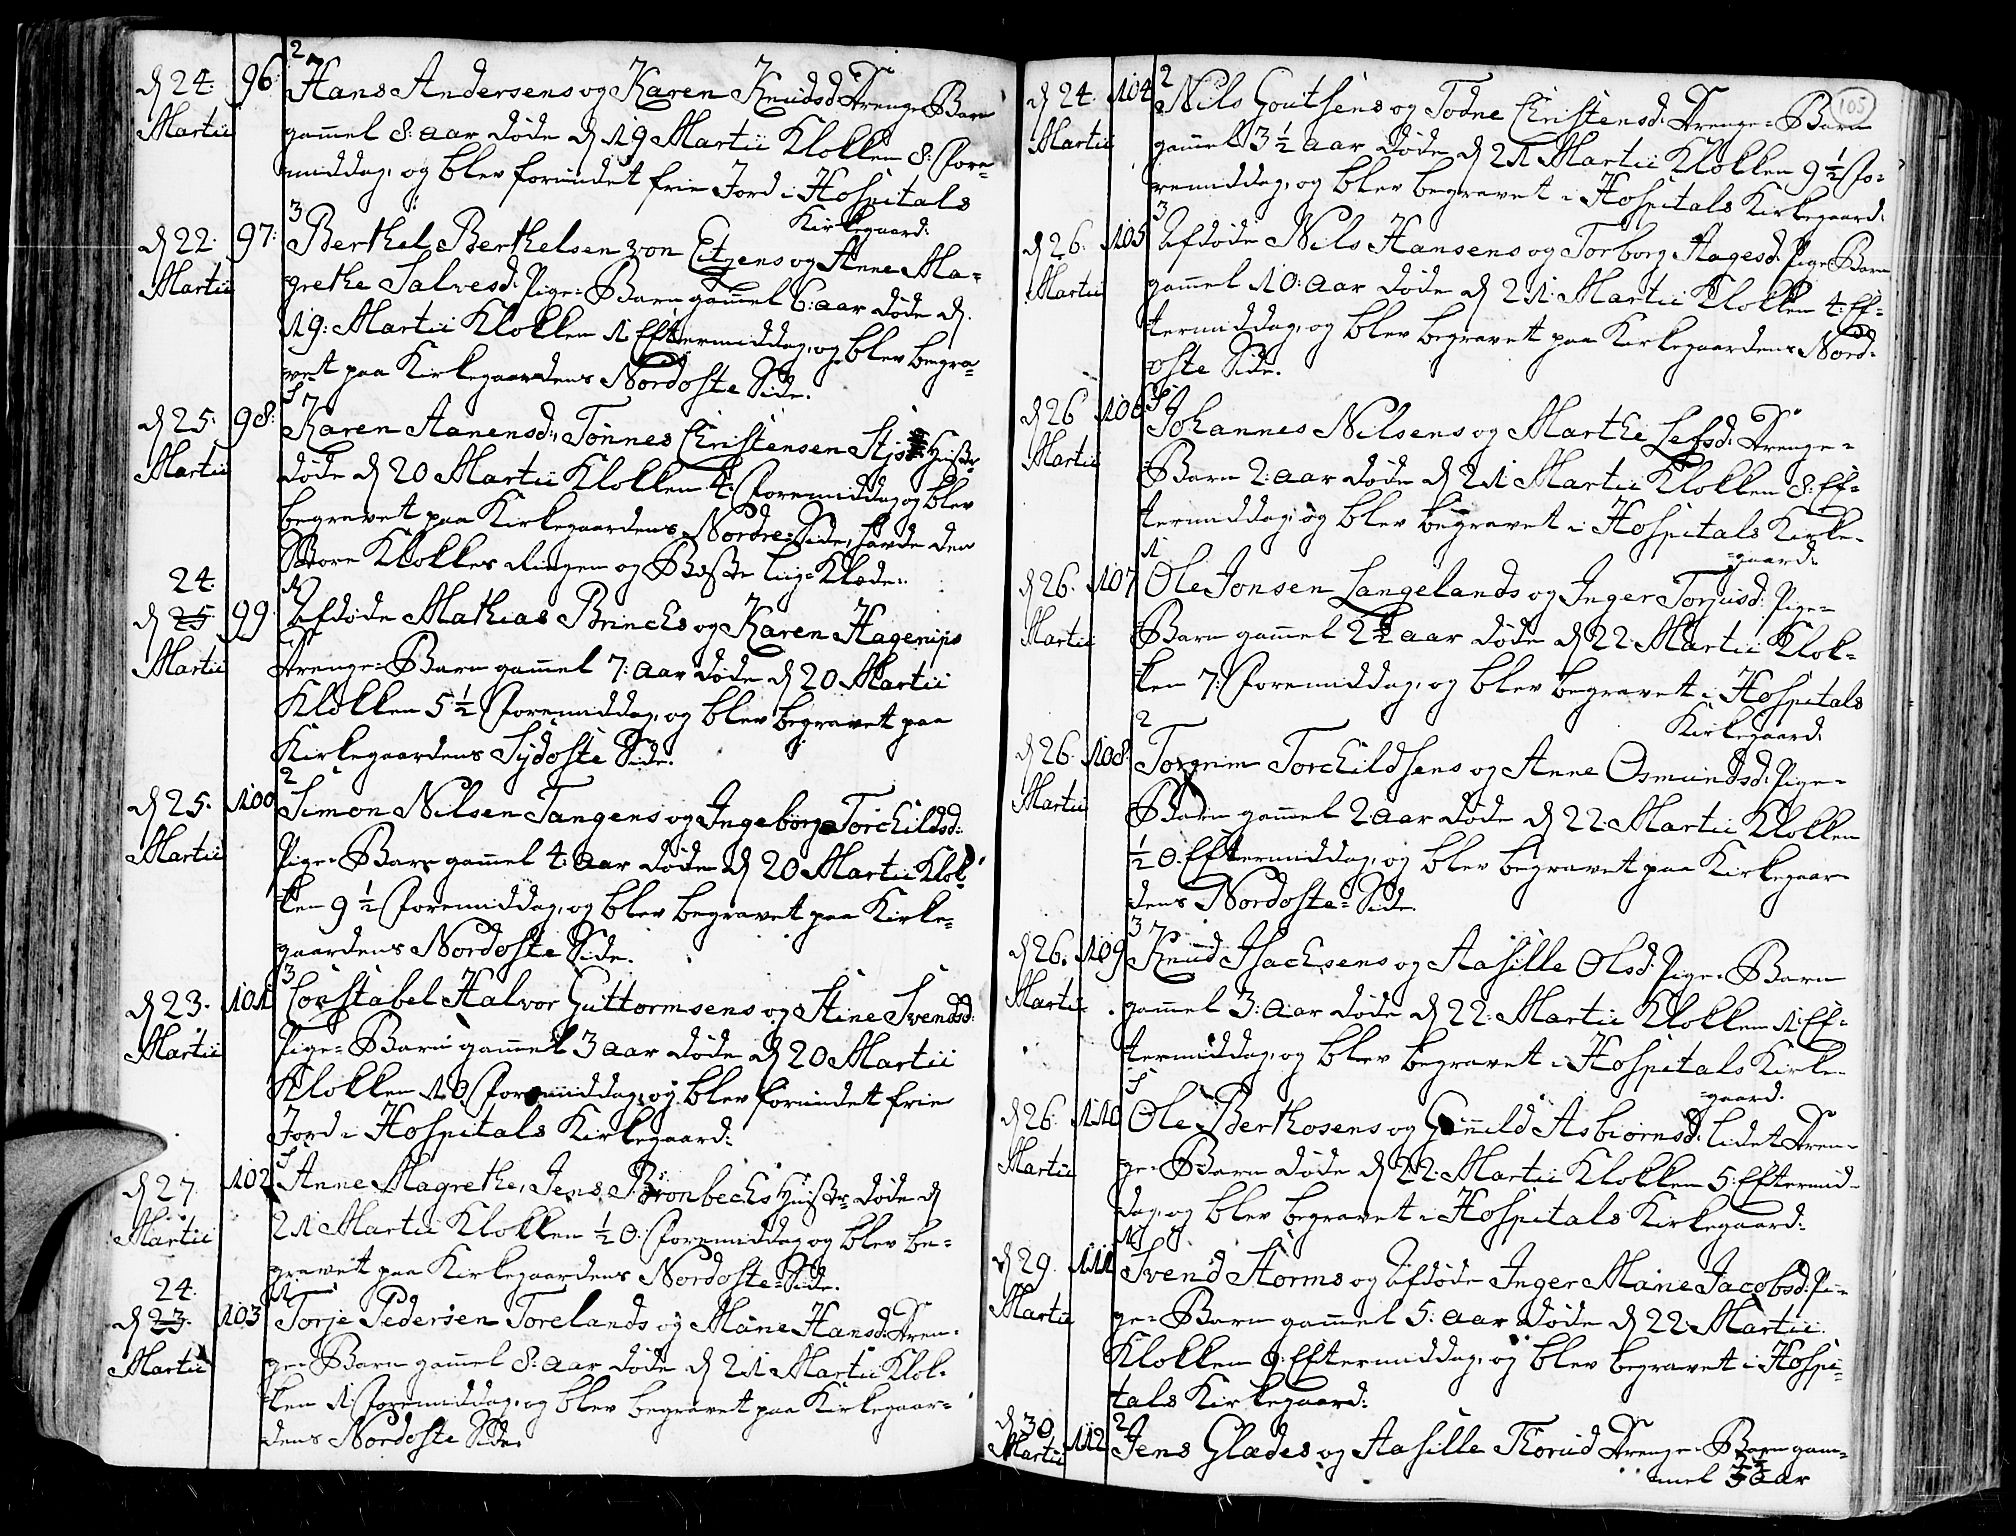 d 24. 96. 2
Martii
Hans Andersens og Karen Knudsd: Drenge-Barn
gammel 8: aar døde d 19 Martii Klokken 8: Fore-
middag, og blev forundet frie Jord i Hospitals
Kirkegaard.
d 22. 97. 3
Martii
Berthel Berthelsen von Eitzens og Anne Ma-
grethe Salvesd: Pige-Barn gammel 6: aar døde d.
19: Martii Klokken 1 Eftermiddag, og blev begra-
vet paa Kirkegaardens Nordoste Side.
d 25. 98.
Martii
Karen Aanensd:, Tønnes Christensen Huustr
døde d 20 Martii Klokken 4: Foremiddag og blev
begravet paa Kirkegaardens Nordre-Side, havde den
Store Klokkes Ringen og Beste Liig-Klæde.
24.
d 25 99
Martii
Afdøde Mathias Brinchs og Karen Hagerups
Drenge-Barn gammel 7: aar døde d 20 Martii
Klokken 5 1/2 Foremiddag, og blev begravet paa
Kirkegaardens Sydoste Side.
d 25. 100 2
Martii
Simon Nilsen Tangens og Ingeborg Torchildsd:
Pige-Barn gammel 4: aar døde d 20 Martii Klok-
ken 9 1/2 Foremiddag, og blev begravet paa Kirke-
gaardens Nordoste Side.
d 23. 101 3
Martii
Constabel Halvor Guttormsens og Stine Svendsd:
Pige-Barn gammel 3 aar døde d 20 Martii
Klokken 10 Foremiddag, og blev forundet frie
Jord i Hospitals Kirkegaard.
d 27. 102
Martii
Anne Magrethe, Jens Brønbechs Huustr døde d
21 Martii Klokken 1/2 0. Foremiddag og blev be-
gravet paa Kirkegaardens Nordoste-Side.
24.
d 23. 103 1
Martii
Torje Pedersen Torelands og Marie Hansd: Dren-
ge-Barn gammel 8: aar døde d 21 Martii Klok-
ken 1 Foremiddag, og blev begravet paa Kirkegaar-
dens Nordoste Side.
105
d 24. 104 2
Martii
Nils Goutsens og Todne Christensd: Drenge-Barn
gammel 3 1/2 aar døde d 21 Martii Klokken 9 1/2 Fo-
remiddag, og blev begravet i Hospitals Kirkegaard.
d 26. 105 3
Martii
Afdøde Nils Hansens og Torborg Aagesd: Pige Barn
gammel 10: aar døde d 21 Martii Klokken 4: Ef-
termiddag, og blev begravet paa Kirkegaardens Nord-
oste Side.
d 26 106
Martii
Johannes Nilsens og Marthe Lefsd: Drenge-
Barn 2: aar døde d 21 Martii Klokken 8: Ef-
termiddag, og blev begravet i Hospitals Kirke-
gaard.
d 26. 107 1
Martii
Ole Jonsen Langelands og Inger Torjusd: Pige-
Barn gammel 2 1/2 aar døde d 22 Martii Klok-
ken 7: Foremiddag, og blev begravet i Hospitals
Kirkegaard.
d 26. 108. 2
Martii
Torgrim Torchildsens og Anne Osmundsd: Pige-
Barn gammel 2 aar døde d 22 Martii Klokken
1/2 0. Eftermiddag, og blev begravet paa Kirkegaar-
dens Nordoste-Side.
d 26. 109 3
Martii
Knud Isachsens og Aasille Olsd: Pige-Barn
gammel 3: aar døde d 22: Martii Klokken 1: Ef-
termiddag, og blev begravet i Hospitals Kirke-
gaard.
d 26. 110
Martii
Ole Berthosens og Gunnild Asbiørnsd: lidet Dren-
ge-Barn døde d 22 Martii Klokken 5: Eftermid-
dag, og blev begravet i Hospitals Kirkegaard.
d 29. 111 1
Martii
Svend Storms og Afdøde Inger Marie Jacobsd: Pi-
ge-Barn gammel 5: aar døde d 22 Martii
Klokken 9: Eftermiddag, og blev begravet i Hospi-
tals Kirkegaard.
d 30 112 2
Martii
Jens Glades og Aasille Thorud Drenge-Barn gam-
mel aar